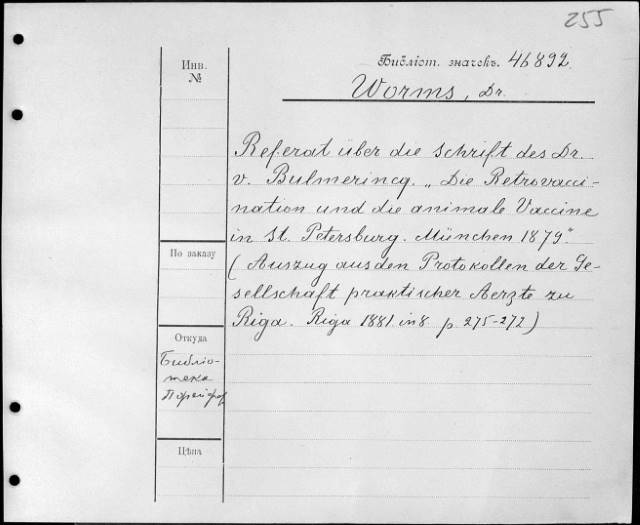 255
Инв. №
Библіот. значекъ. 46892.
Worms, Dr.
Referat über die Schrift des Dr.
v. Bulmerincq. „Die Retrovacci-
nation und die animale Vaccine
in St. Petersburg. München 1879."
(Auszug aus den Protokollen der Ge-
sellschaft praktischer Aerzte zu
Riga. Riga 1881. in 8. p. 275-272)
По заказу
Откуда
Библіо-
тека
Цѣна